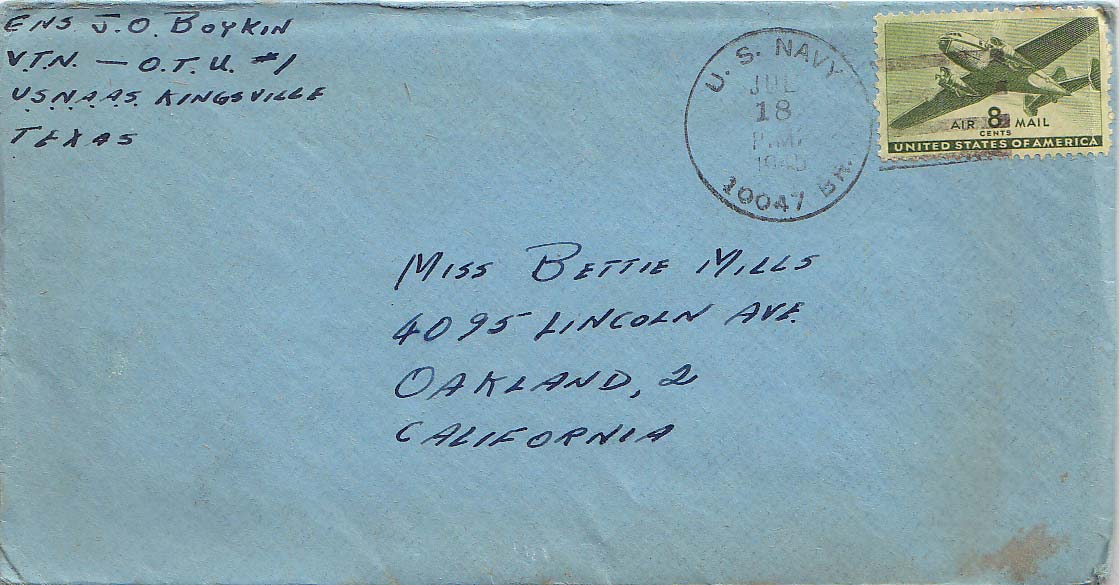 ENS J.O. BOYKIN
V.T.N. — O.T.U. #1
U.S.N.A.A.S. KINGSVILLE
TEXAS
U. S. NAVY
JUL
18
P.M.
1945
10047 BR.
AIR 8 MAIL
CENTS
UNITED STATES OF AMERICA
MISS BETTIE MILLS
4095 LINCOLN AVE.
OAKLAND, 2
CALIFORNIA